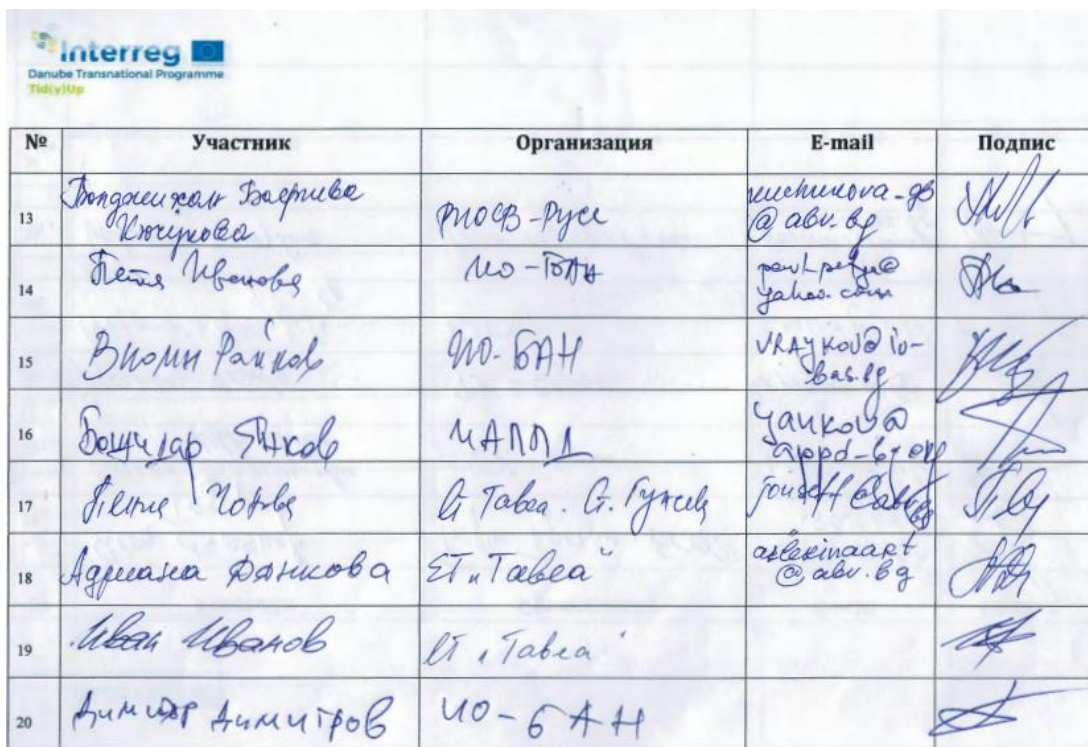 Interreg
Danube Transnational Programme
Tid(y)Up
№ Участник Организация E-mail Подпис
13 Кючукова РИОСВ-Русе kuchukova-gb
@abv.bg
14 Петя Иванова ИО-БАН
yahoo.com
15 Райков ИО-БАН VRAYKOV@io-
bas.bg
16 Божидар Янков ИАППД yankov@
appd-bg.org
17 Ет Тавеа.
18 Адриана Данкова ЕТ "Тавеа" arlekinaart
@abv.bg
19 Иван Иванов Ет "Тавеа"
20 Димитър Димитров ИО-БАН